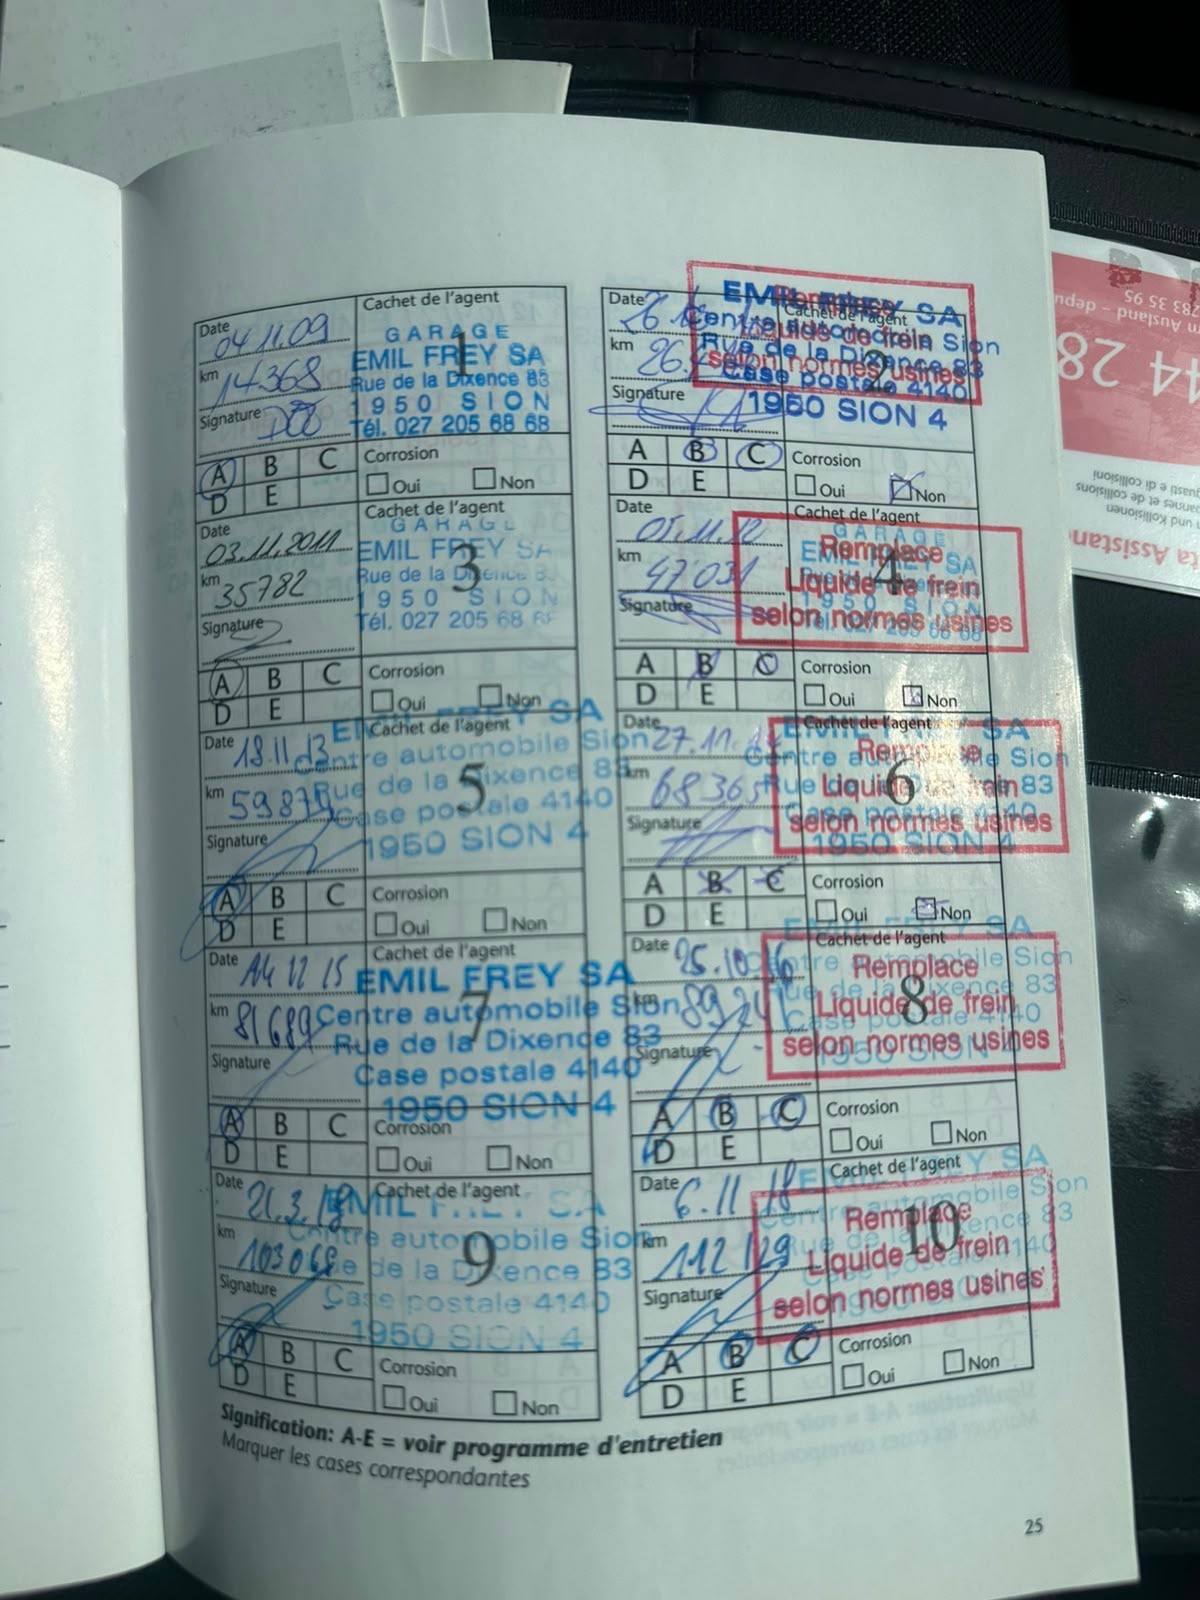 Date 04.11.09
km 14368
Signature
Cachet de l'agent
1
GARAGE
EMIL FREY SA
Rue de la Dixence 83
1950 SION
Tél. 027 205 68 68
A B C
D E
Corrosion
Oui Non
Date
km
Signature
Cachet de l'agent
2
EMIL FREY SA
Centre automobile Sion
Rue de la Dixence 83
Case postale 4140
1950 SION 4
Remplace
Liquide de frein
selon normes usines
A B C
D E
Corrosion
Oui Non
Date 03.11.2011
km 35782
Signature
Cachet de l'agent
3
GARAGE
EMIL FREY SA
Rue de la Dixence 83
1950 SION
Tél. 027 205 68 68
A B C
D E
Corrosion
Oui Non
Date 05.11.12
km 47'031
Signature
Cachet de l'agent
4
GARAGE
EMIL FREY SA
1950 SION
Tél. 027 205 68 68
Remplace
Liquide de frein
selon normes usines
A B C
D E
Corrosion
Oui Non
Date 18.11.13
km
Signature
Cachet de l'agent
5
EMIL FREY SA
Centre automobile Sion
Rue de la Dixence 83
Case postale 4140
1950 SION 4
A B C
D E
Corrosion
Oui Non
Date 27.11.
km 68365
Signature
Cachet de l'agent
6
EMIL FREY SA
Centre automobile Sion
Rue de la Dixence 83
Case postale 4140
1950 SION 4
Remplace
Liquide de frein
selon normes usines
A B C
D E
Corrosion
Oui Non
Date 14 12 15
km 81689
Signature
Cachet de l'agent
7
EMIL FREY SA
Centre automobile Sion
Rue de la Dixence 83
Case postale 4140
1950 SION 4
A B C
D E
Corrosion
Oui Non
Date 25.10.16
km
Signature
Cachet de l'agent
8
EMIL FREY SA
Centre automobile Sion
Rue de la Dixence 83
Case postale 4140
1950 SION
Remplace
Liquide de frein
selon normes usines
A B C
D E
Corrosion
Oui Non
Date 21.3.18
km 103068
Signature
Cachet de l'agent
9
EMIL FREY SA
Centre automobile Sion
Rue de la Dixence 83
Case postale 4140
1950 SION 4
A B C
D E
Corrosion
Oui Non
Date 6.11 18
km 112129
Signature
Cachet de l'agent
10
EMIL FREY SA
Centre automobile Sion
Rue de la Dixence 83
Remplace
Liquide de frein
selon normes usines
A B C
D E
Corrosion
Oui Non
Signification: A-E = voir programme d'entretien
Marquer les cases correspondantes
25
44 28
283 35 95
und Kollisionen
pannes et de collisions
guasti e di collisioni